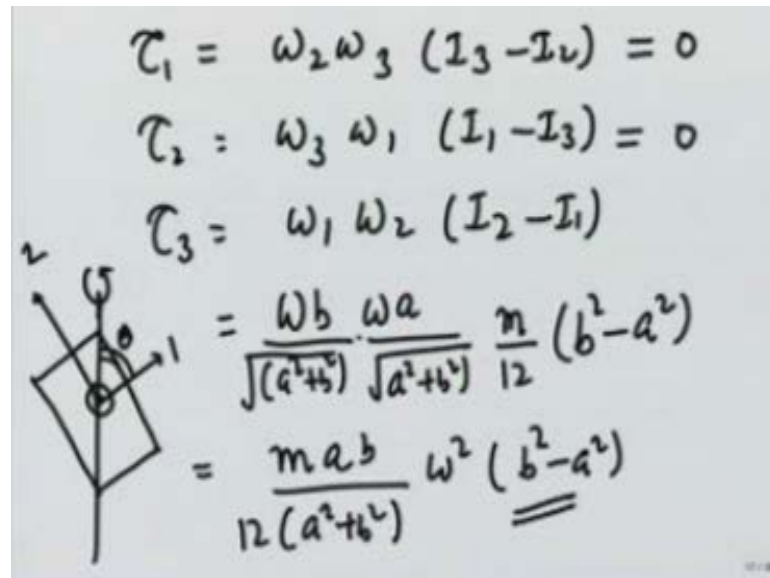 τ₁ = ω₂ω₃ (I₃-I₂) = 0
τ₂ = ω₃ ω₁ (I₁-I₃) = 0
τ₃ = ω₁ ω₂ (I₂-I₁)
= ωb/√(a²+b²) · ωa/√(a²+b²) m/12 (b²-a²)
= mab/12(a²+b²) ω² (b²-a²)
2
θ
1